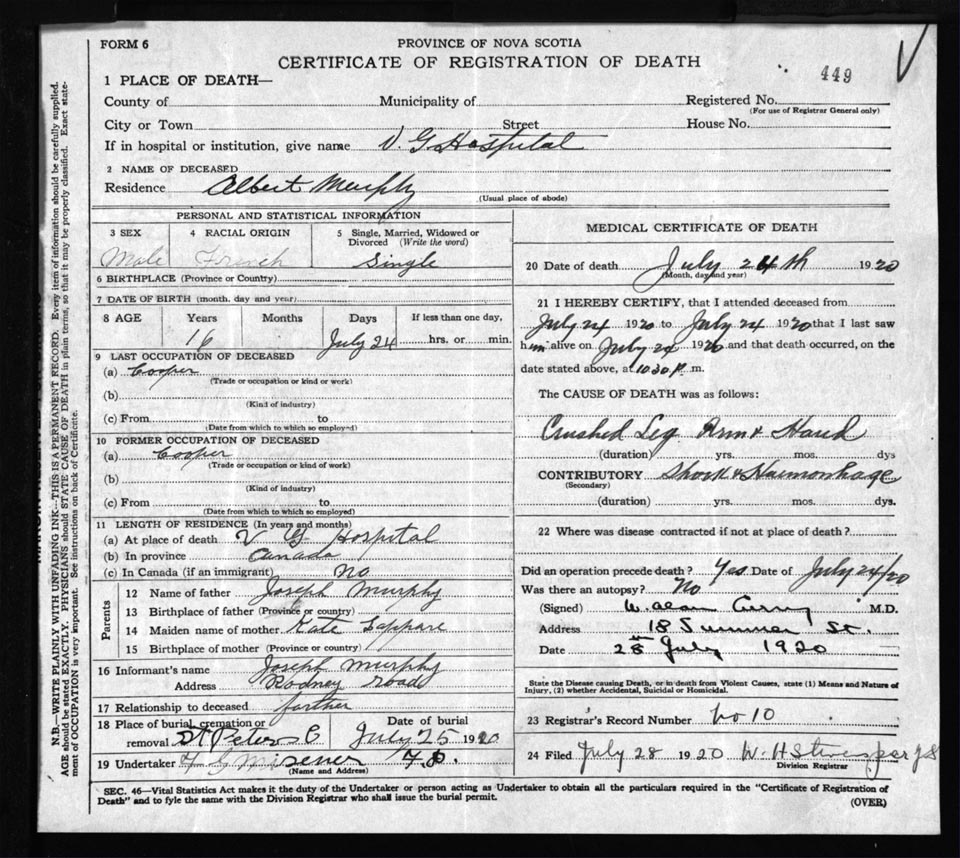 FORM 6
PROVINCE OF NOVA SCOTIA
CERTIFICATE OF REGISTRATION OF DEATH
449
1 PLACE OF DEATH—
County of Municipality of Registered No.
(For use of Registrar General only)
City or Town Street House No.
If in hospital or institution, give name V. G. Hospital
2 NAME OF DECEASED
Residence Albert Murphy
(Usual place of abode)
PERSONAL AND STATISTICAL INFORMATION
3 SEX 4 RACIAL ORIGIN 5 Single, Married, Widowed or Divorced (Write the word)
Male French Single
6 BIRTHPLACE (Province or Country)
7 DATE OF BIRTH (month, day and year)
8 AGE Years Months Days If less than one day,
16 July 24 hrs. or min.
9 LAST OCCUPATION OF DECEASED
(a) Cooper
(Trade or occupation or kind or work)
(b)
(Kind of industry)
(c) From to
(Date from which to which so employed)
10 FORMER OCCUPATION OF DECEASED
(a) Cooper
(Trade or occupation or kind of work)
(b)
(Kind of industry)
(c) From to
(Date from which to which so employed)
11 LENGTH OF RESIDENCE (In years and months)
(a) At place of death V G Hospital
(b) In province Canada
(c) In Canada (if an immigrant) no
Parents
12 Name of father Joseph Murphy
13 Birthplace of father (Province or country)
14 Maiden name of mother Kate
15 Birthplace of mother (Province or country)
16 Informant's name Joseph Murphy
Address Rodney road
17 Relationship to deceased farther
18 Place of burial, cremation or removal St Peters C Date of burial July 25 1920
19 Undertaker
(Name and Address)
MEDICAL CERTIFICATE OF DEATH
20 Date of death July 24th 1920
(Month, day and year)
21 I HEREBY CERTIFY, that I attended deceased from
July 24 1920 to July 24 1920 that I last saw
him alive on July 24 1920 and that death occurred, on the
date stated above, at 10 30 P. m.
The CAUSE OF DEATH was as follows:
Crushed Leg Arm & Hand
(duration) yrs. mos. dys
CONTRIBUTORY Shock & Haemorrhage
(Secondary)
(duration) yrs. mos. dys.
22 Where was disease contracted if not at place of death?
Did an operation precede death? Yes Date of July 24/20
Was there an autopsy? No
(Signed) W. Alan Curry M.D.
Address 18 Summer St.
Date 28th July 1920
State the Disease causing Death, or in death from Violent Causes, state (1) Means and Nature of
Injury, (2) whether Accidental, Suicidal or Homicidal.
23 Registrar's Record Number No 10
24 Filed July 28 1920
Division Registrar
SEC. 46—Vital Statistics Act makes it the duty of the Undertaker or person acting as Undertaker to obtain all the particulars required in the "Certificate of Registration of
Death" and to fyle the same with the Division Registrar who shall issue the burial permit.
(OVER)
N.B.—WRITE PLAINLY WITH UNFADING INK—THIS IS A PERMANENT RECORD. Every item of information should be carefully supplied.
AGE should be stated EXACTLY. PHYSICIANS should STATE CAUSE OF DEATH in plain terms, so that it may be properly classified. Exact statement of OCCUPATION is very important. See instructions on back of Certificate.